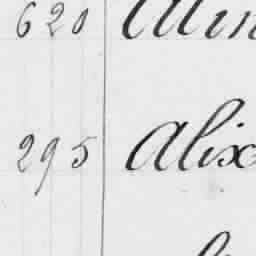 620
295 Alix